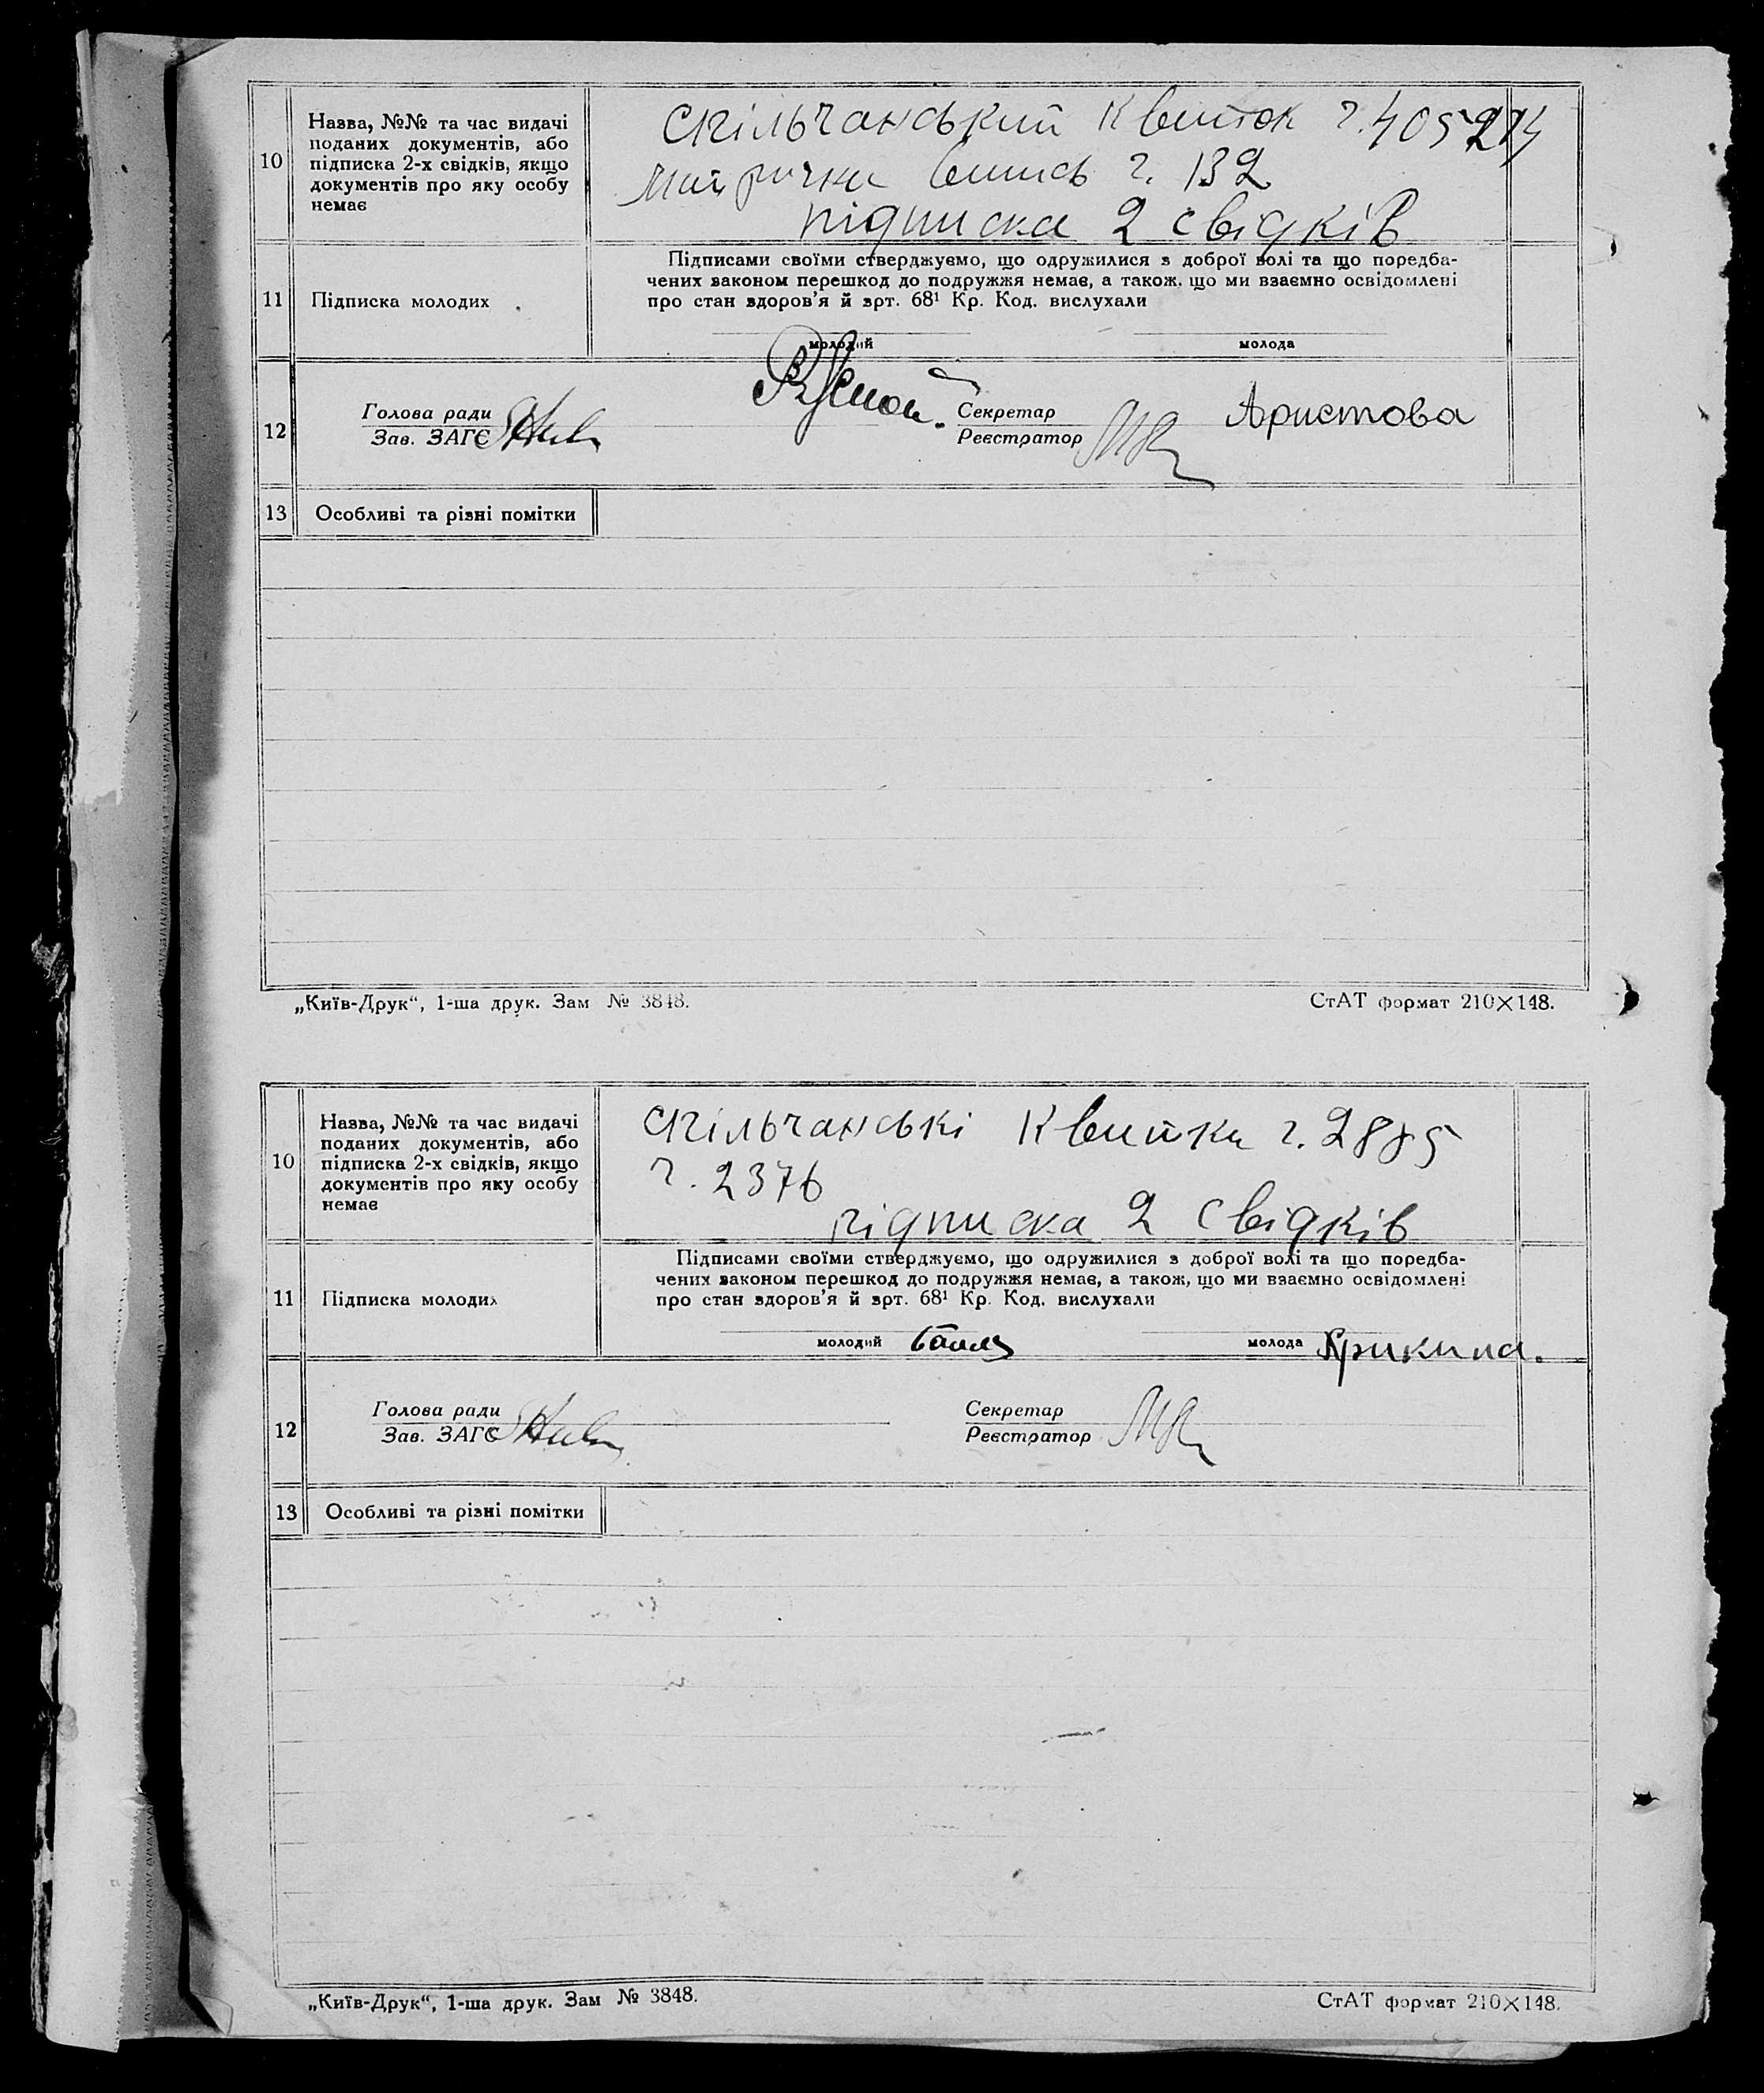 10
Назва, №№ та час видачі
поданих документів, або
підписка 2-х свідків, якщо
документів про яку особу
немає
Спільчанський Квиток ч. 405214
ч. 132
підписка 2 свідків
11
Підписка молодих
Підписами своїми стверджуємо, що одружилися з доброї волі та що передба-
чених законом перешкод до подружжя немає, а також, що ми взаємно освідомлені
про стан здоров'я й арт. 68¹ Кр. Код. вислухали
молодий
молода
12
Голова ради
Зав. ЗАГС
Секретар
Реєстратор
Аристова
13
Особливі та різні помітки
„Київ-Друк“, 1-ша друк. Зам № 3848.
СтАТ формат 210×148.
10
Назва, №№ та час видачі
поданих документів, або
підписка 2-х свідків, якщо
документів про яку особу
немає
Спільчанські Квитки ч. 2885
ч. 2376
підписка 2 свідків
11
Підписка молодих
Підписами своїми стверджуємо, що одружилися з доброї волі та що поредба-
чених законом перешкод до подружжя немає, а також, що ми взаємно освідомлені
про стан здоров'я й арт. 68¹ Кр. Код. вислухали
молодий
молода Крикина.
12
Голова ради
Зав. ЗАГС
Секретар
Реєстратор
13
Особливі та різні помітки
„Київ-Друк“, 1-ша друк. Зам № 3848.
СтАТ формат 210×148.